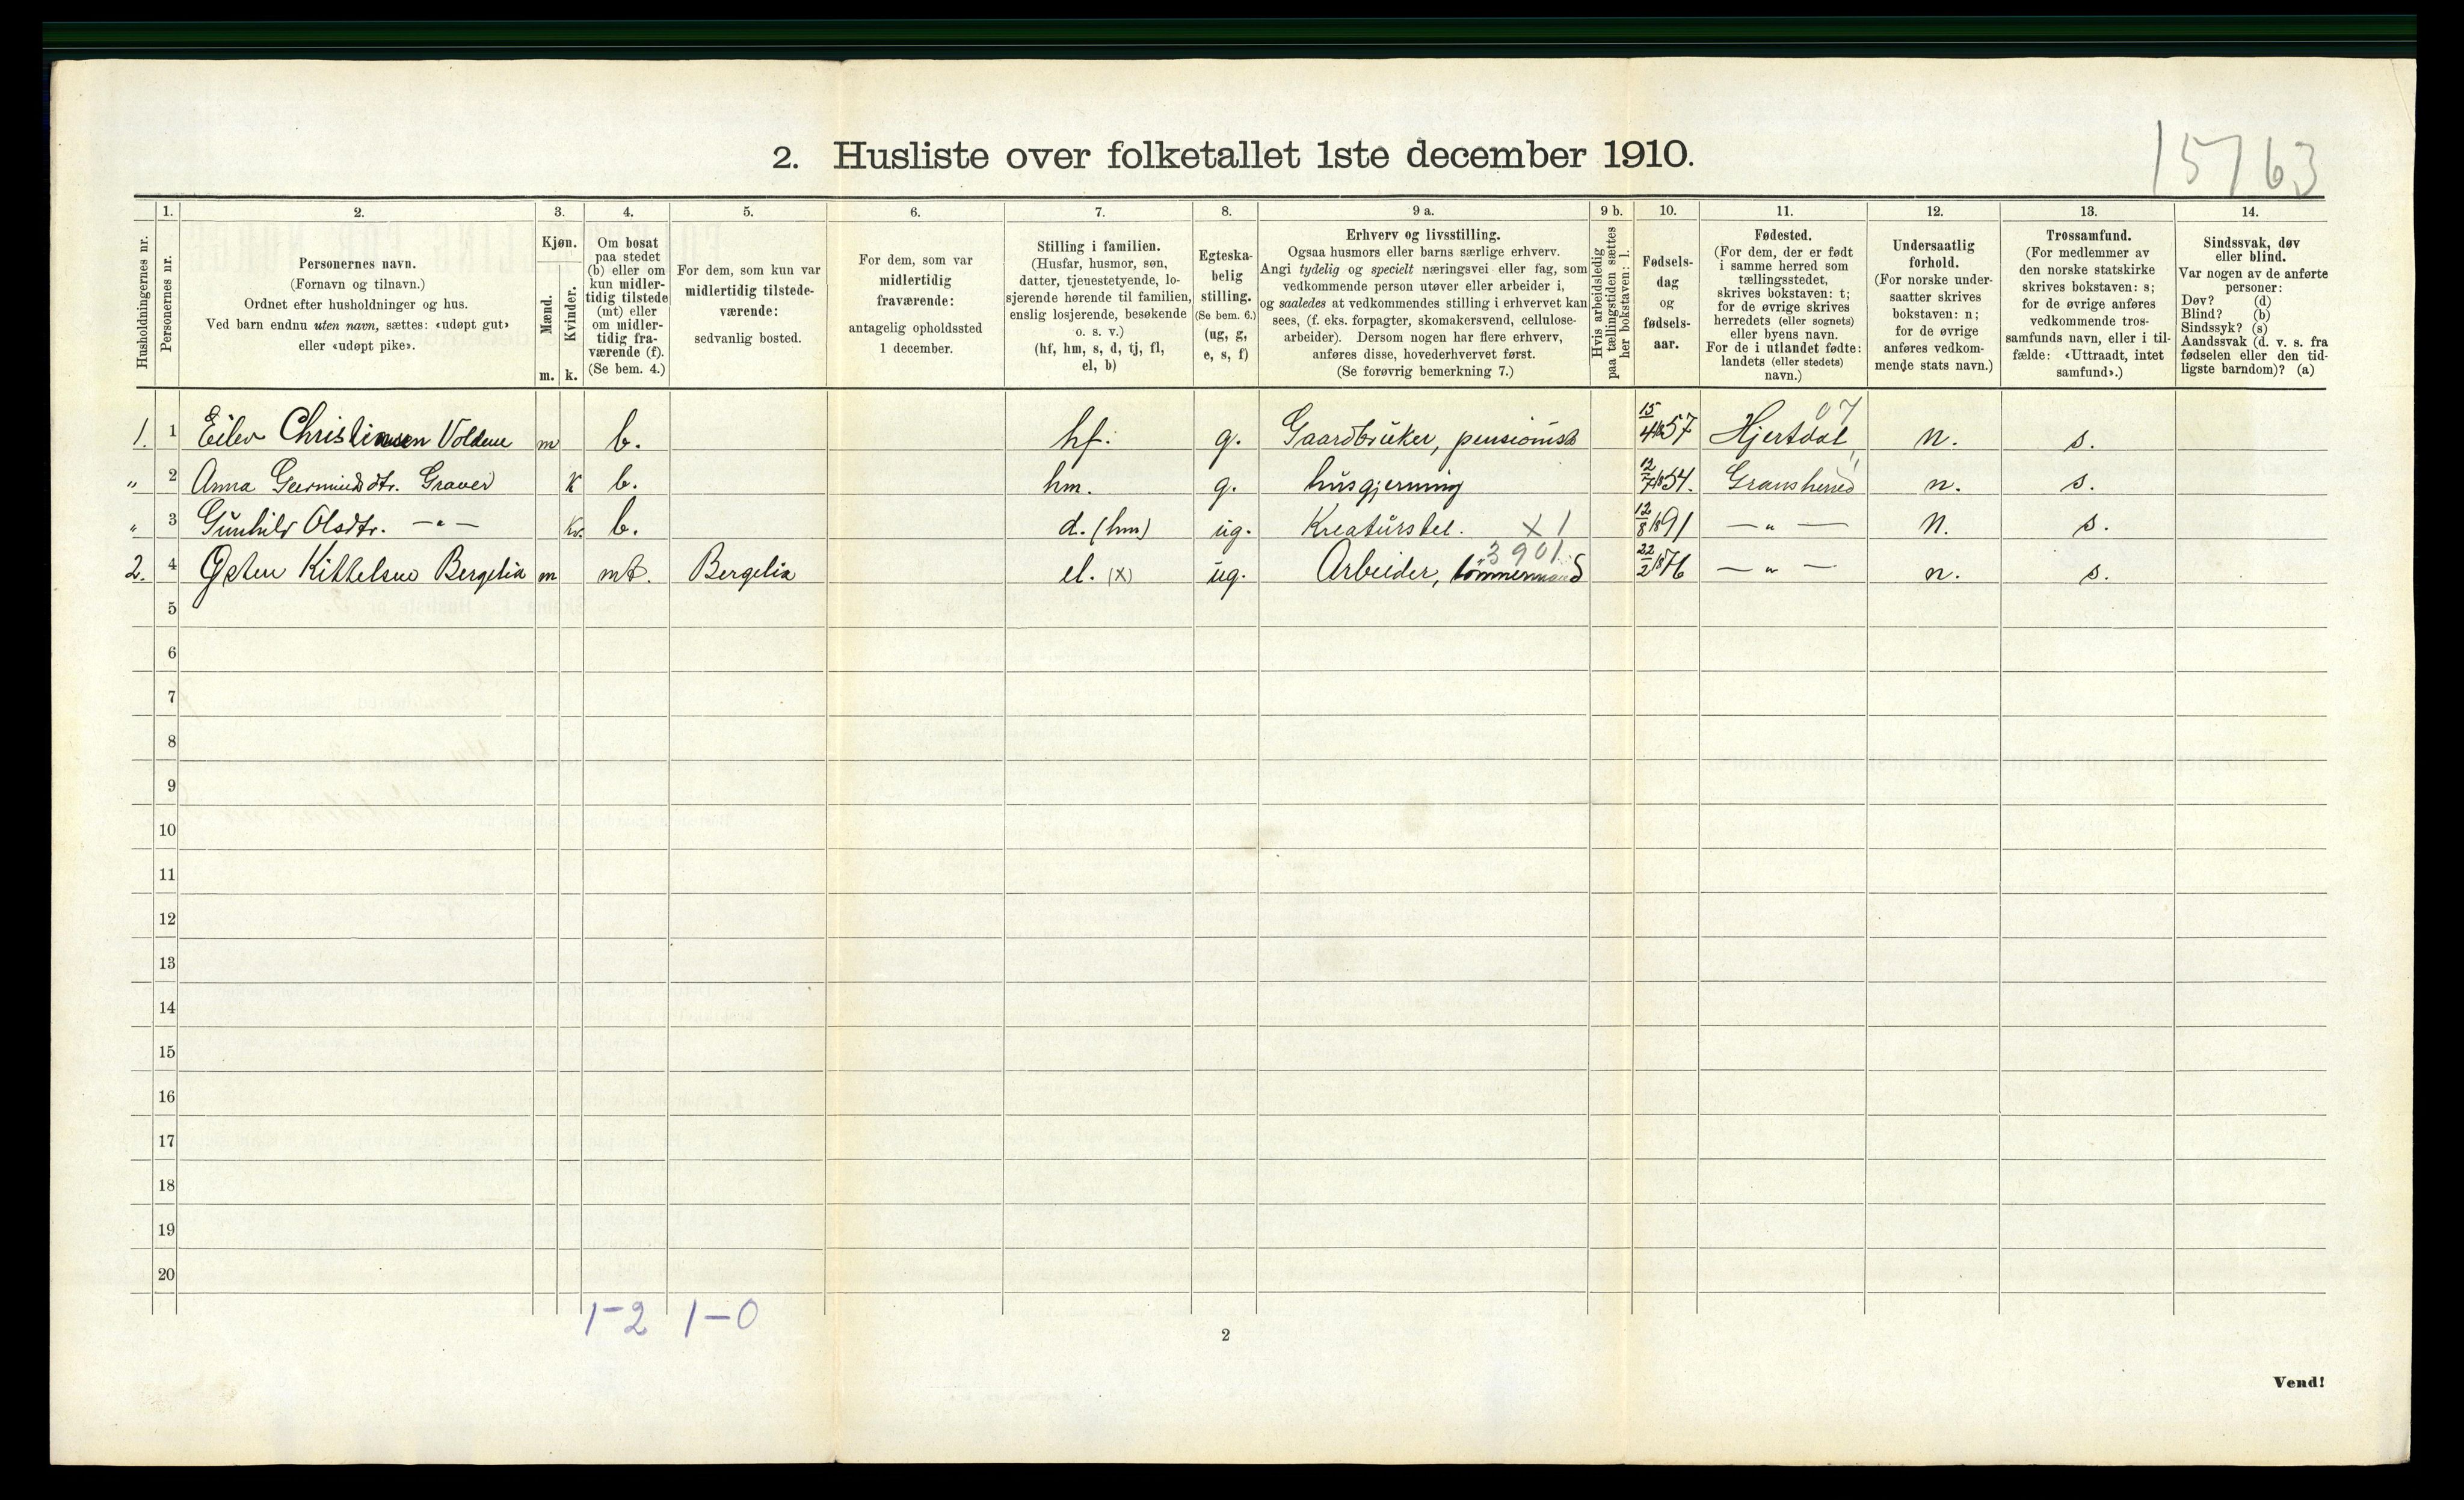 15763
2. Husliste over folketallet 1ste december 1910.
Husholdningernes nr.
1.
Personernes nr.
2.
Personernes navn.
(Fornavn og tilnavn.)
Ordnet efter husholdninger og hus.
Ved barn endnu uten navn, sættes: «udøpt gut»
eller «udøpt pike».
3.
Kjøn.
Mænd.
Kvinder.
m. k.
4.
Om bosat
paa stedet
(b) eller om
kun midler-
tidig tilstede
(mt) eller
om midler-
tidig fra-
værende (f).
(Se bem. 4.)
5.
For dem, som kun var
midlertidig tilstede-
værende:
sedvanlig bosted.
6.
For dem, som var
midlertidig
fraværende:
antagelig opholdssted
1 december.
7.
Stilling i familien.
(Husfar, husmor, søn,
datter, tjenestetyende, lo-
sjerende hørende til familien,
enslig losjerende, besøkende
o. s. v.)
(hf, hm, s, d, tj, fl,
el, b)
8.
Egteska-
belig
stilling.
(Se bem. 6.)
(ug, g,
e, s, f)
9 a.
Erhverv og livsstilling.
Ogsaa husmors eller barns særlige erhverv.
Angi tydelig og specielt næringsvei eller fag, som
vedkommende person utøver eller arbeider i,
og saaledes at vedkommendes stilling i erhvervet kan
sees, (f. eks. forpagter, skomakersvend, cellulose-
arbeider). Dersom nogen har flere erhverv,
anføres disse, hovederhvervet først.
(Se forøvrig bemerkning 7.)
9 b.
Hvis arbeidsledig
paa tællingstiden sættes
her bokstaven: l.
10.
Fødsels-
dag
og
fødsels-
aar.
11.
Fødested.
(For dem, der er født
i samme herred som
tællingsstedet,
skrives bokstaven: t;
for de øvrige skrives
herredets (eller sognets)
eller byens navn.
For de i utlandet fødte:
landets (eller stedets)
navn.)
12.
Undersaatlig
forhold.
(For norske under-
saatter skrives
bokstaven: n;
for de øvrige
anføres vedkom-
mende stats navn.)
13.
Trossamfund.
(For medlemmer av
den norske statskirke
skrives bokstaven: s;
for de øvrige anføres
vedkommende tros-
samfunds navn, eller i til-
fælde: «Uttraadt, intet
samfund».)
14.
Sindssvak, døv
eller blind.
Var nogen av de anførte
personer:
Døv? (d)
Blind? (b)
Sindssyk? (s)
Aandssvak (d. v. s. fra
fødselen eller den tid-
ligste barndom)? (a)
07
1. 1 Eilev Christiansen Voldene m b. hf. g. Gaardbruker, pensionist 15/4 1857 Hjertdal n. s.
" 2 Anna Geermundsdtr. Graver K b. hm. g. husgjerning 12/7 1854. Gransherred " n. s.
" 3 Gunhild Olsdtr. — " — Kv. b. d. (hm) ug. Kreaturstel. X 1 12/8 1891 — " — n. s.
3901.
2. 4 Østen Kittelsen Bergelia m mt. Bergelia el. (X) ug. Arbeider, tømmermand 22/2 1876 — " — n. s.
5
6
7
8
9
10
11
12
13
14
15
16
17
18
19
20
1-2 1-0
2
Vend!